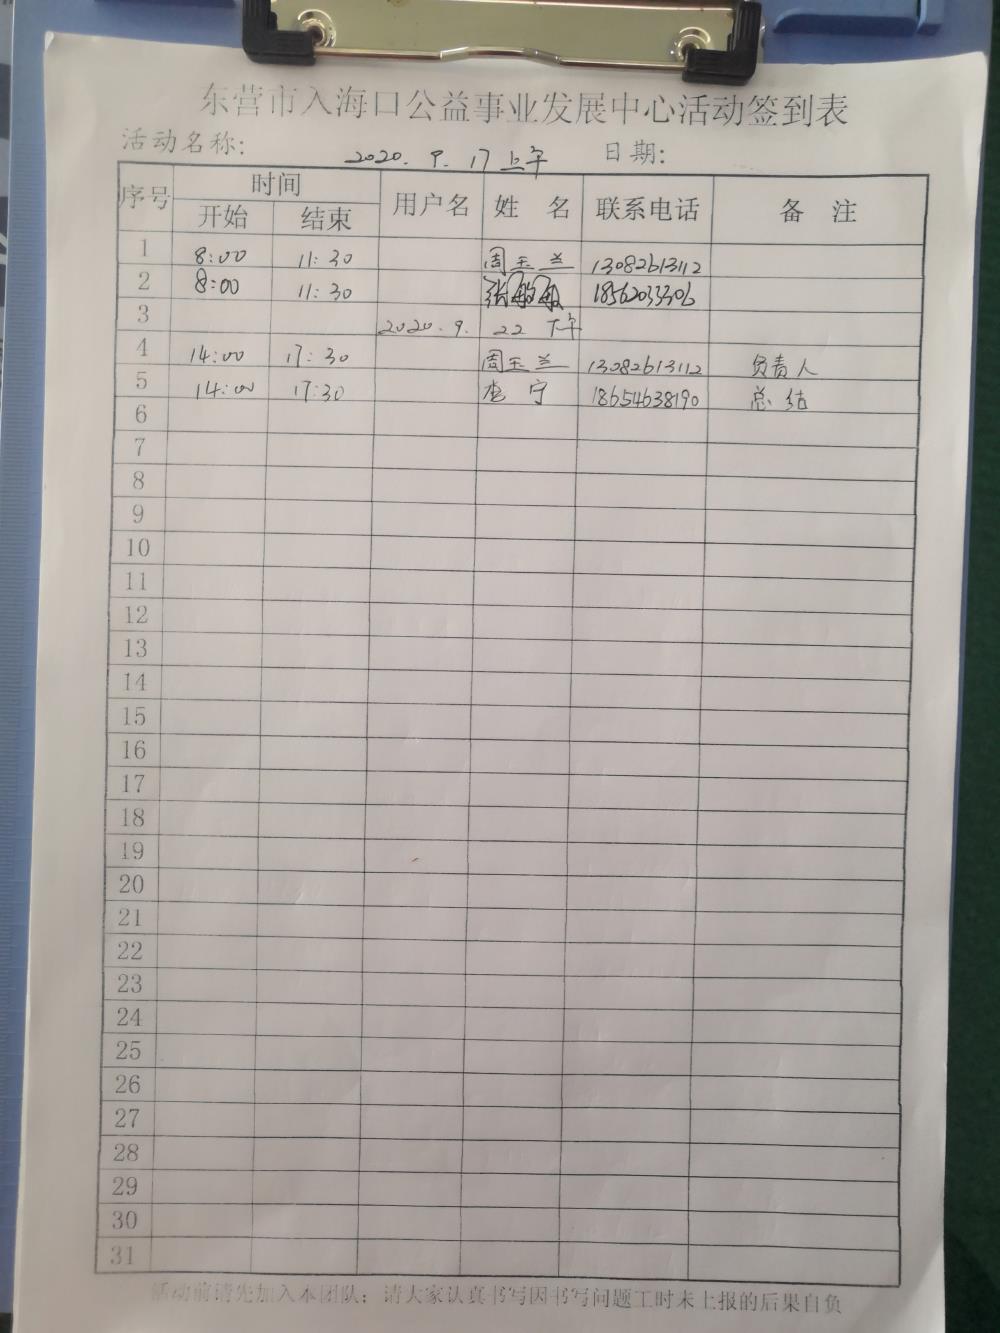 东营市入海口公益事业发展中心活动签到表
活动名称: 2020.9.17上午 日期:
序号 时间 用户名 姓 名 联系电话 备 注
开始 结束
1 8:00 11:30 周玉兰 13082613112
2 8:00 11:30 张敏敏 18562033306
3 2020.9.22 下午
4 14:00 17:30 周玉兰 13082613112 负责人
5 14:00 17:30 李宁 18654638190 总结
6
7
8
9
10
11
12
13
14
15
16
17
18
19
20
21
22
23
24
25
26
27
28
29
30
31
活动前请先加入本团队；请大家认真书写因书写问题工时未上报的后果自负